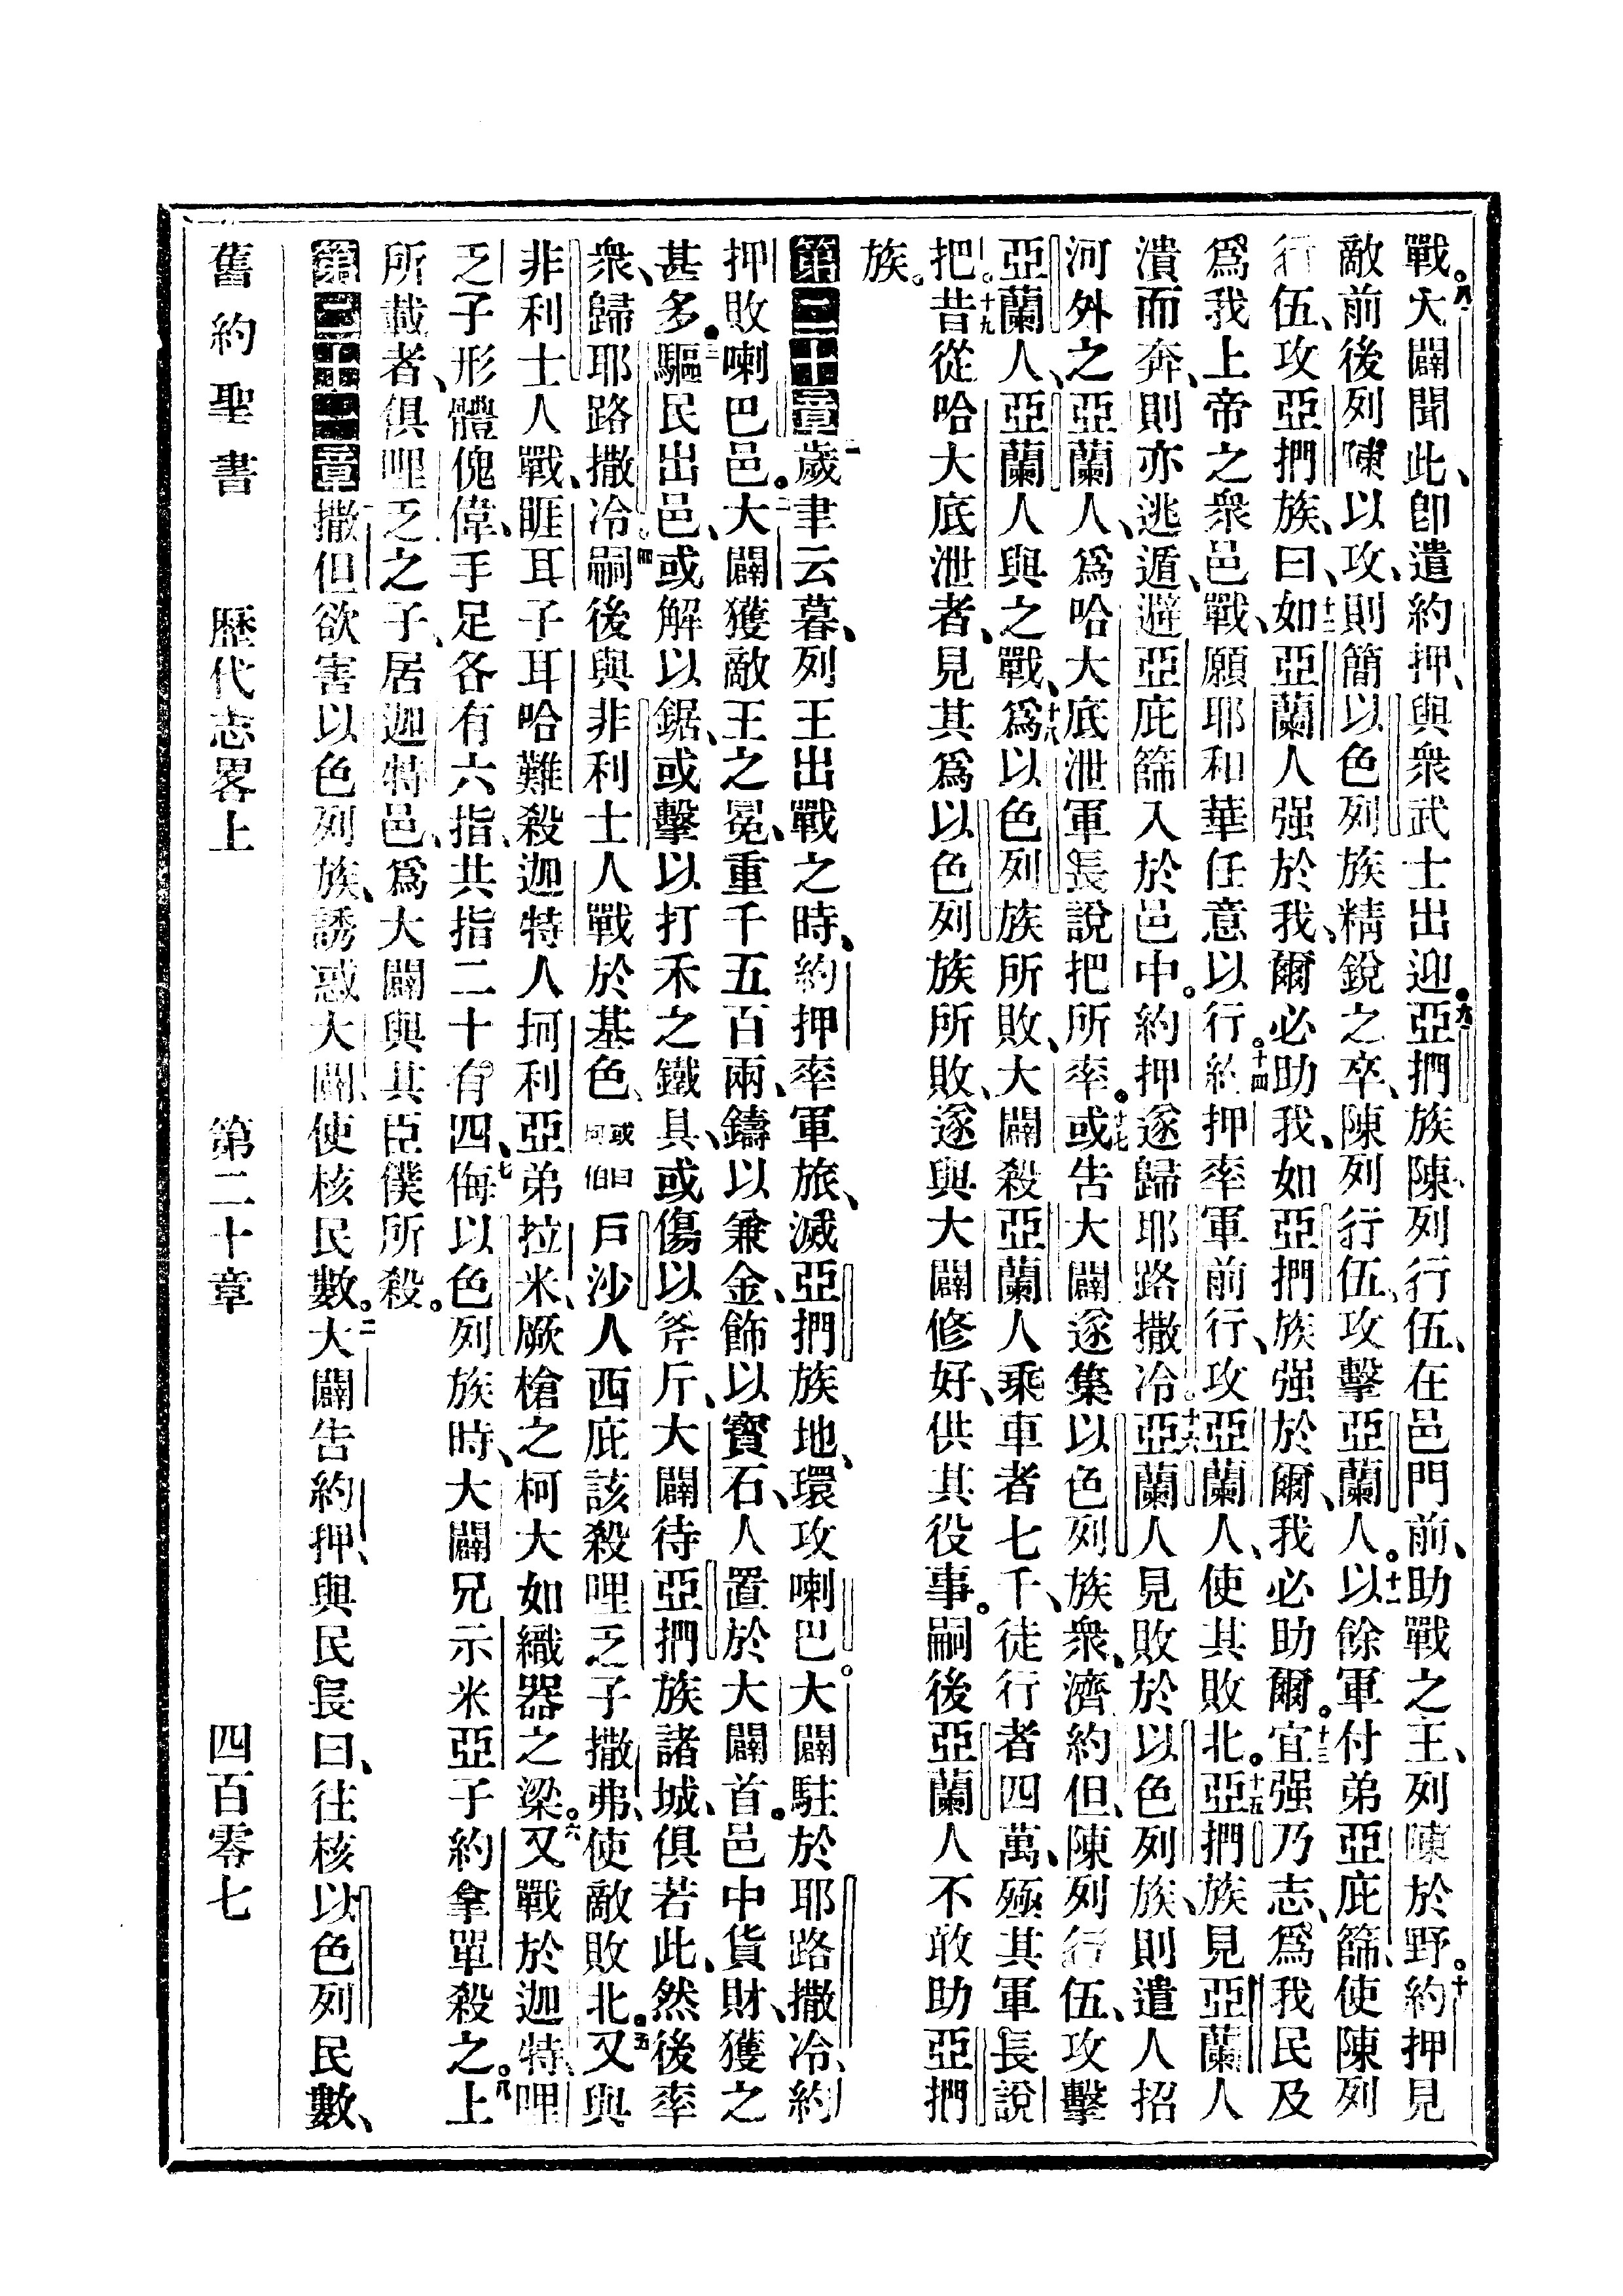 戰。八大闢聞此、卽遣約押、與衆武士出迎。九亞捫族陳列行伍、在邑門前、助戰之王、列陳於野。十約押見
敵前後列陳以攻、則簡以色列族精銳之卒、陳列行伍、攻擊亞蘭人。十一以餘軍付弟亞庇篩、使陳列
行伍、攻亞捫族、曰、十二如亞蘭人强於我、爾必助我、如亞捫族强於爾、我必助爾。十三宜强乃志、爲我民及
爲我上帝之衆邑戰、願耶和華任意以行。十四約押率軍前行、攻亞蘭人、使其敗北。十五亞捫族見亞蘭人
潰而奔、則亦逃遁、避亞庇篩入於邑中。約押遂歸耶路撒冷。十六亞蘭人見敗於以色列族、則遣人招
河外之亞蘭人、爲哈大底泄軍長說把所率。十七或告大闢遂集以色列族衆、濟約但、陳列行伍、攻擊
亞蘭人、亞蘭人與之戰、十八爲以色列族所敗、大闢殺亞蘭人乘車者七千、徒行者四萬、殛其軍長說
把。十九昔從哈大底泄者、見其爲以色列族所敗、遂與大闢修好、供其役事。嗣後亞蘭人不敢助亞捫
族。
第二十章一歲聿云暮、列王出戰之時、約押率軍旅、滅亞捫族地、環攻喇巴。大闢駐於耶路撒冷、約
押敗喇巴邑。二大闢獲敵王之冕、重千五百兩、鑄以兼金、飾以寶石、人置於大闢首。邑中貨財、獲之
甚多。三驅民出邑、或解以鋸、或擊以打禾之鐵具、或傷以斧斤、大闢待亞捫族諸城、俱若此、然後率
衆、歸耶路撒冷。四嗣後與非利士人戰於基色、或曰坷伯戶沙人西庇該殺哩乏子撒弗、使敵敗北。五又與
非利士人戰、睚耳子耳哈難殺迦特人坷利亞弟拉米、厥槍之柯大如織器之梁。六又戰於迦特、哩
乏子形體傀偉、手足各有六指、共指二十有四、七侮以色列族時、大闢兄示米亞子約拿單殺之。八上
所載者、俱哩乏之子、居迦特邑、爲大闢與其臣僕所殺。
第二十一章撒但欲害以色列族、誘惑大闢、使核民數。二大闢告約押、與民長曰、往核以色列民數、
舊約聖書　歷代志畧上　第二十章　四百零七